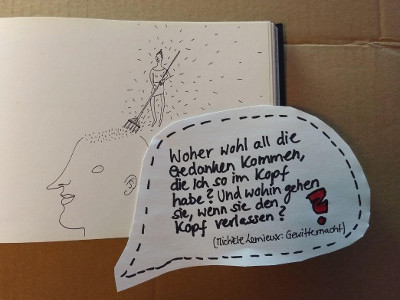 Woher wohl all die
Gedanken kommen,
die ich so im Kopf
habe? Und wohin gehen
sie, wenn sie den
Kopf verlassen?
(Michèle Lemieux: Gewitternacht)